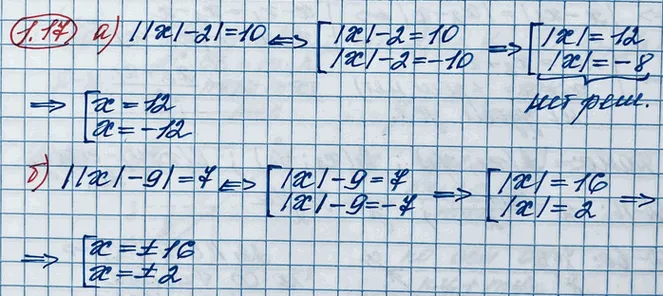 1.17 а) ||x|-2|=10 <=> [|x|-2=10 => [|x|=12
|x|-2=-10 |x|=-8
нет реш.
=> [x=12
x=-12
б) ||x|-9|=7 <=> [|x|-9=7 => [|x|=16 =>
|x|-9=-7 |x|=2
=> [x=±16
x=±2